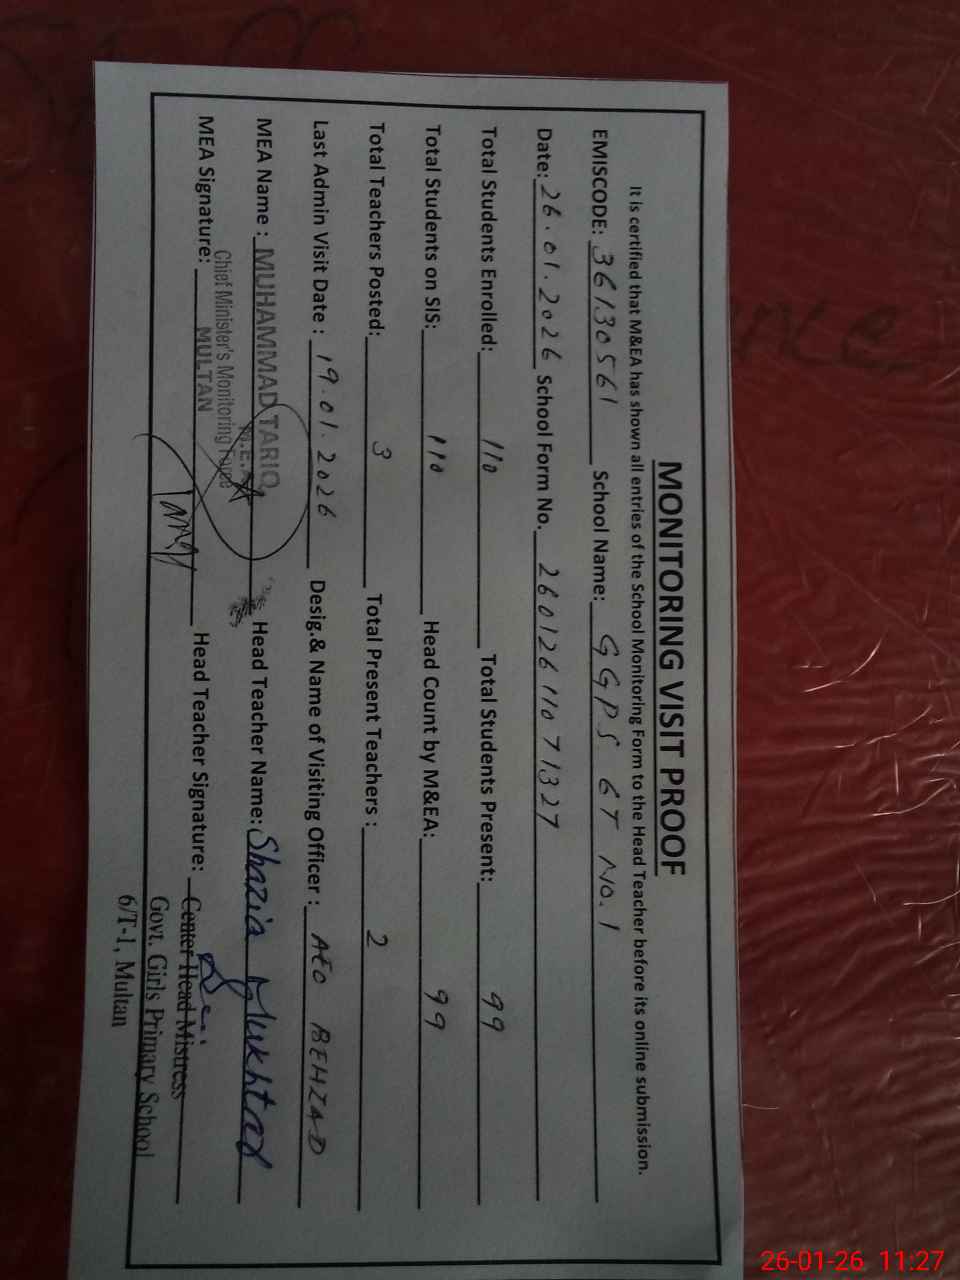 MONITORING VISIT PROOF
It is certified that M&EA has shown all entries of the School Monitoring Form to the Head Teacher before its online submission.
EMISCODE: 36130561 School Name: GGPS 6T No.1
Date: 26.01.2026 School Form No. 26012611071327
Total Students Enrolled: 110 Total Students Present: 99
Total Students on SIS: 110 Head Count by M&EA: 99
Total Teachers Posted: 3 Total Present Teachers : 2
Last Admin Visit Date : 19.01.2026 Desig.& Name of Visiting Officer : AEO BEHZAD
MEA Name : MUHAMMAD TARIQ Head Teacher Name: Shazia Mukhtar
M.E.A
Chief Minister's Monitoring Force
MULTAN
MEA Signature: Tariq Head Teacher Signature:
Center Head Mistress
Govt. Girls Primary School
6/T-1, Multan
26-01-26 11:27